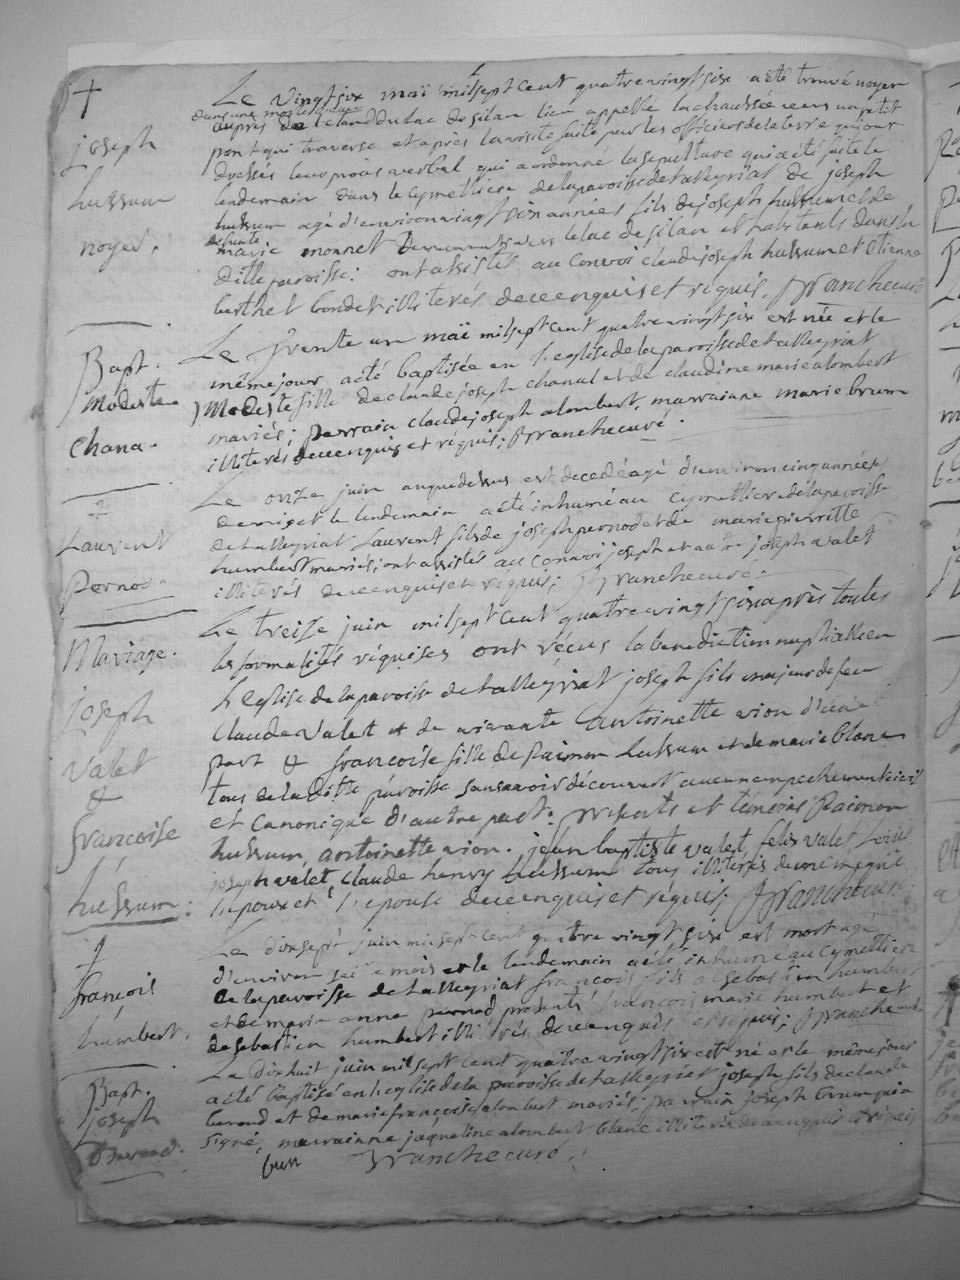 Le vingt six maï mil sept cent quatre vingt six a été trouvé noyer
dans une
auprès de l'etand du lac de silan lieu appellé la chaussée vers un petit
pont qui traverse et après la visite faite par les officiers de la terre qui ont
dressés leur procés verbal qui a ordonné la sepulture qui a été faite le
lendemain dans le cymettiere de la paroisse de tallegriat de joseph
hussum agé d'environ vingt six années fils de joseph hussum et de
defunte
marie monnet demeurants vers le lac de silan et habitants dans la
ditte paroisse: ont assistés au convoi claude joseph hussum et etienne
berthet bondet illiterés de ce enquis et réquis. ffranche curé
joseph
hussum
noyer.
Le trente un maï mil sept cent quatre vingt six est née et le
même jour a été baptisée en l'eglise de la paroisse de tallegriat
Modeste fille de claude joseph chanal et de claudine marie alombert
mariés; parrain claude joseph alombert, marrainne marie brum
illiterés de ce enquis et réquis; ffranche curé.
Bapt.
Modeste
Chana.
Le onze juin an que dessus est decedé agé d'environ cinq années
demi et le lendemain a été inhumé au cymettiere de la paroisse
de tallegriat Laurent fils de joseph pernod et de marie pierrette
humbert mariés; ont assistés au convoi joseph et autre joseph valet
illiterés de ce enquis et réquis; ffranche curé.
Laurent
Pernod.
Le treize juin mil sept cent quatre vingt six après toutes
les formalités réquises ont réçus la benediction nuptialle en
l'eglise de la paroisse de tallegriat joseph fils majeur de feu
Claude valet et de vivante antoinette vion d'une
part & francoise fille de Raimon hussum et de marie blanc
tous de la ditte paroisse sans avoir découvert aucun empechement civil
et canonique d'autre part. présents et témoins Raimon
hussum, antoinette vion. jean baptiste valet, felis valet, louis
joseph valet, claude henry hussum tous illiterés de une
l'epoux et l'epouse de ce enquis et réquis; ffranche curé
Mariage.
joseph
valet
&
francoise
hussum:
Le dix sept juin mil sept cent quatre vingt six est mort agé
d'environ seize mois et le lendemain a été inhumé au cymettiere
de la paroisse de tallegriat françois fils a sebastien humbert
et de marie anne pernod présents françois marie humbert et
de sebastien humbert illiterés de ce enquis et réquis; ffranche curé.
françois
humbert.
Le dix huit juin mil sept cent quatre vingt six est né et le même jour
a été baptisé en l'eglise de la paroisse de tallegriat joseph fils de claude
berend et de marie françoise alombert mariés; parrain joseph brum qui a
signé, marrainne jaqueline alombert blanc illiterée de ce enquis et réquis
brun ffranche curé.
Bapt.
joseph